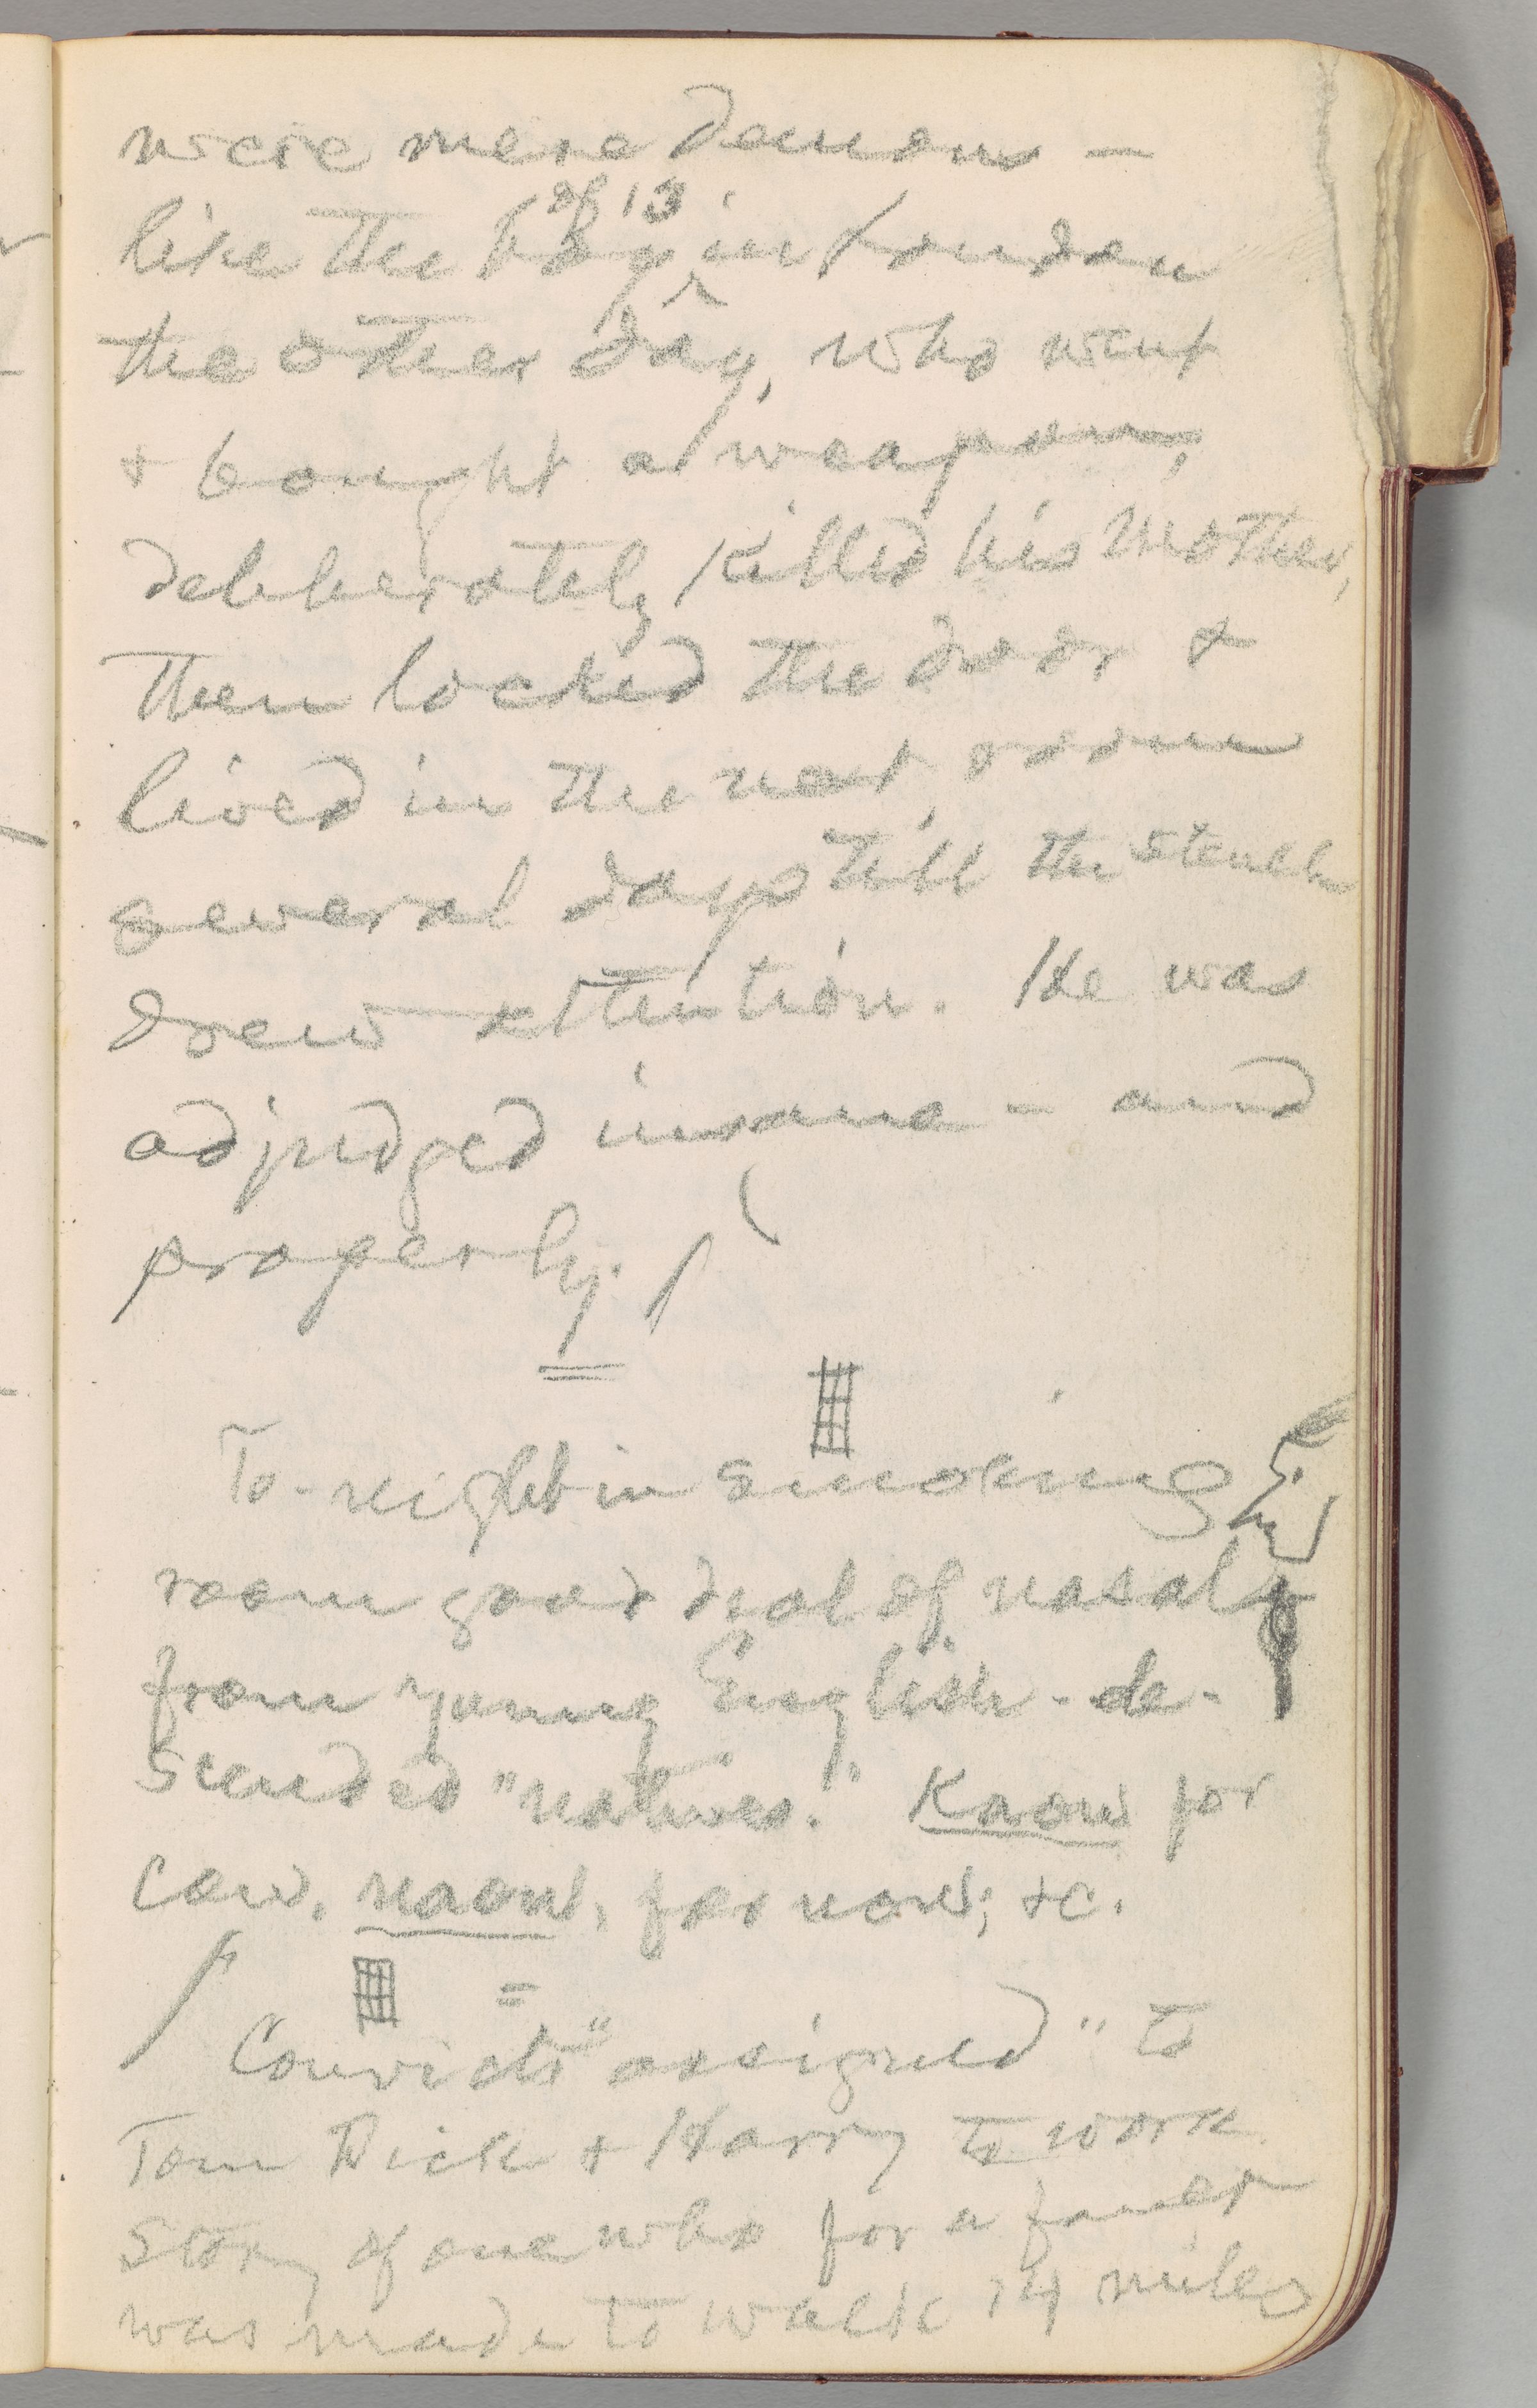 were mere demons —
like the boy of 13 in London
the other day, who went
& bought a weapon,
deliberately killed his mother,
then locked the door &
lived in the next room
several days till the stench
drew attention. He was
adjudged insane — and
properly.
To-night in smoking
room good deal of nasal
from young English-de-
scended "natives." Know for
cow, naow, for now; &c.
Convicts "assigned" to
Tom Dick & Harry to work
Story of one who for a
was made to walk 14 miles